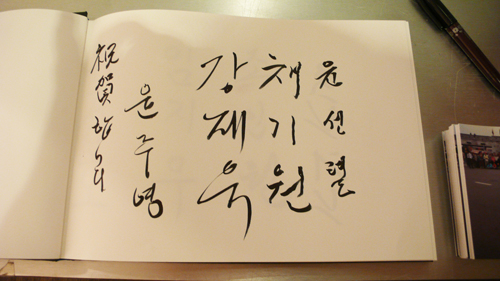 祝賀합니다
윤주영
강재욱
채기원
윤선렬